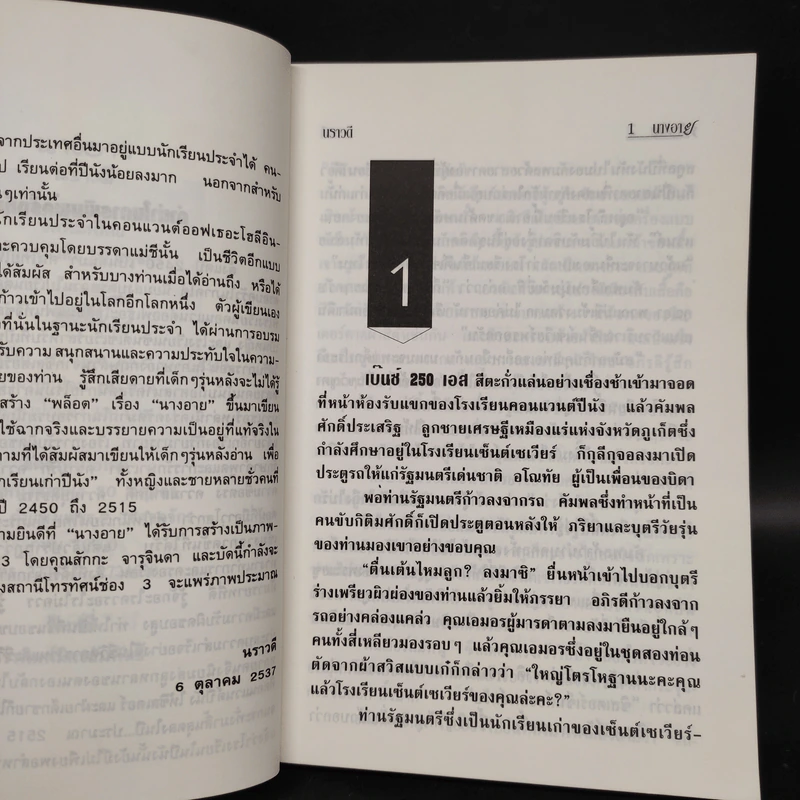 จากประเทศอื่นมาอยู่แบบนักเรียนประจำได้ คน-
ป เรียนต่อที่ปีนังน้อยลงมาก นอกจากสำหรับ
นๆเท่านั้น
นักเรียนประจำในคอนแวนต์ออฟเธอะโฮลีอิน-
ะควบคุมโดยบรรดาแม่ชีนั้น เป็นชีวิตอีกแบบ
ได้สัมผัส สำหรับบางท่านเมื่อได้อ่านถึง หรือได้
ก้าวเข้าไปอยู่ในโลกอีกโลกหนึ่ง ตัวผู้เขียนเอง
ที่นั่นในฐานะนักเรียนประจำ ได้ผ่านการอบรม
รับความ สนุกสนานและความประทับใจในความ-
ยของท่าน รู้สึกเสียดายที่เด็กๆรุ่นหลังจะไม่ได้รู้
สร้าง “พล็อต” เรื่อง “นางอาย” ขึ้นมาเขียน
ใช้ฉากจริงและบรรยายความเป็นอยู่ที่แท้จริงใน
ามที่ได้สัมผัสมาเขียนให้เด็กๆรุ่นหลังอ่าน เพื่อ
กเรียนเก่าปีนัง” ทั้งหญิงและชายหลายชั่วคนที่
ปี 2450 ถึง 2515
ามยินดีที่ “นางอาย” ได้รับการสร้างเป็นภาพ-
3 โดยคุณสักกะ จารุจินดา และบัดนี้กำลังจะ
งสถานีโทรทัศน์ช่อง 3 จะแพร่ภาพประมาณ
นราวดี
6 ตุลาคม 2537
นราวดี
1 นางอาย
1
เบ๊นซ์ 250 เอส สีตะกั่วแล่นอย่างเชื่องช้าเข้ามาจอด
ที่หน้าห้องรับแขกของโรงเรียนคอนแวนต์ปีนัง แล้วคัมพล
ศักดิ์ประเสริฐ ลูกชายเศรษฐีเหมืองแร่แห่งจังหวัดภูเก็ตซึ่ง
กำลังศึกษาอยู่ในโรงเรียนเซ็นต์เซเวียร์ ก็กุลีกุจอลงมาเปิด
ประตูรถให้แก่รัฐมนตรีเด่นชาติ อโณทัย ผู้เป็นเพื่อนของบิดา
พอท่านรัฐมนตรีก้าวลงจากรถ คัมพลซึ่งทำหน้าที่เป็น
คนขับกิติมศักดิ์ก็เปิดประตูตอนหลังให้ ภริยาและบุตรีวัยรุ่น
ของท่านมองเขาอย่างขอบคุณ
“ตื่นเต้นไหมลูก? ลงมาซิ” ยื่นหน้าเข้าไปบอกบุตรี
ร่างเพรียวผิวผ่องของท่านแล้วยิ้มให้ภรรยา อภิรดีก้าวลงจาก
รถอย่างคล่องแคล่ว คุณเอมอรผู้มารดาตามลงมายืนอยู่ใกล้ๆ
คนทั้งสี่เหลียวมองรอบๆ แล้วคุณเอมอรซึ่งอยู่ในชุดสองท่อน
ตัดจากผ้าสวิสแบบเก๋ก็กล่าวว่า “ใหญ่โตรโหฐานนะคะคุณ
แล้วโรงเรียนเซ็นต์เซเวียร์ของคุณล่ะคะ?”
ท่านรัฐมนตรีซึ่งเป็นนักเรียนเก่าของเซ็นต์เซเวียร์-